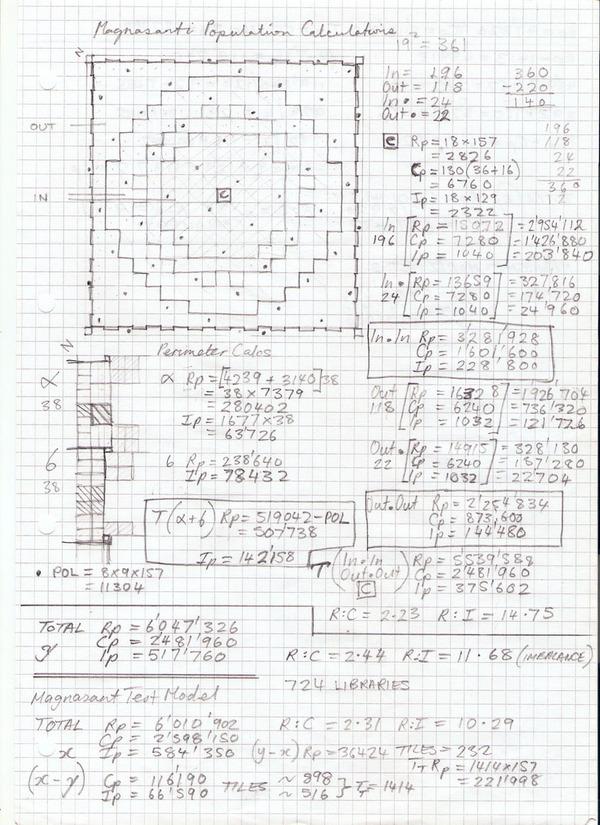 Magnasanti Population Calculations
19² = 361
N
OUT
IN
C
In = 196
Out = 118
In• = 24
Out• = 22
360
-220
140
196
118
24
22
360
12
C Rp = 18×157
= 2826
Cp = 130(36+16)
= 6760
Ip = 18×129
= 2322
In 196 [Rp = 15072] = 2'954'112
[Cp = 7280] = 1'426'880
[Ip = 1040] = 203'840
In• 24 [Rp = 13659] = 327,816
[Cp = 7280] = 174,720
[Ip = 1040] = 24'960
In•In Rp = 3'281'928
Cp = 1'601'600
Ip = 228'800
Out 118 [Rp = 16328] = 1'926,704
[Cp = 6240] = 736'320
[Ip = 1032] = 121'776
Out• 22 [Rp = 14915] = 328'130
[Cp = 6240] = 137'280
[Ip = 1032] = 22704
Out•Out Rp = 2'254'834
Cp = 873,600
Ip = 144'480
N
α
38
6
38
Perimeter Calcs
α Rp = [4239 + 3140]38
= 38×7379
= 280402
Ip = 1677×38
= 63726
6 Rp = 238'640
Ip = 78432
T(α+6) Rp = 519042-POL
= 507'738
Ip = 142'158
• POL = 8×9×157
= 11304
T (In•In Out•Out C) Rp = 5'539'588
Cp = 2'481'960
Ip = 375'602
R:C = 2.23 R:I = 14.75
TOTAL Rp = 6'047'326
y Cp = 2'481'960
Ip = 517'760
R:C = 2.44 R:I = 11.68 (IMBALANCE)
724 LIBRARIES
Magnasanti Test Model
TOTAL Rp = 6'010'902 R:C = 2.31 R:I = 10.29
Cp = 2'598'150
x Ip = 584'350 (y-x) Rp = 36424 TILES = 232
(x-y) Cp = 116'190 TILES ~ 898
Ip = 66'590 ~ 516 } T = 1414
TT Rp = 1414×157
= 221'998